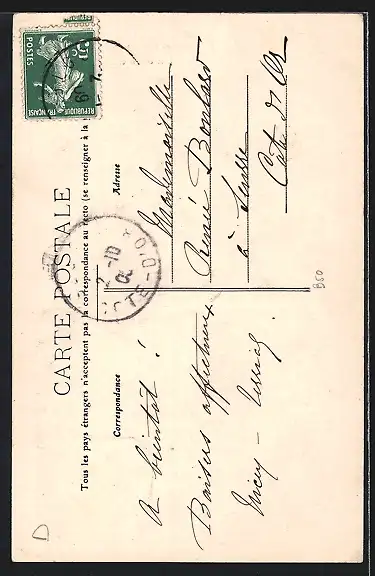 CARTE POSTALE
Tous les pays étrangers n'acceptent pas la correspondance au recto (se renseigner à la
Correspondance
Adresse
A bientôt !
Baisers affectueux
Mademoiselle
Renée
à Seurre
Côte d'Or
5c
POSTES
REPUBLIQUE FRANÇAISE
2-10
CÔTE-D'OR
B50
D